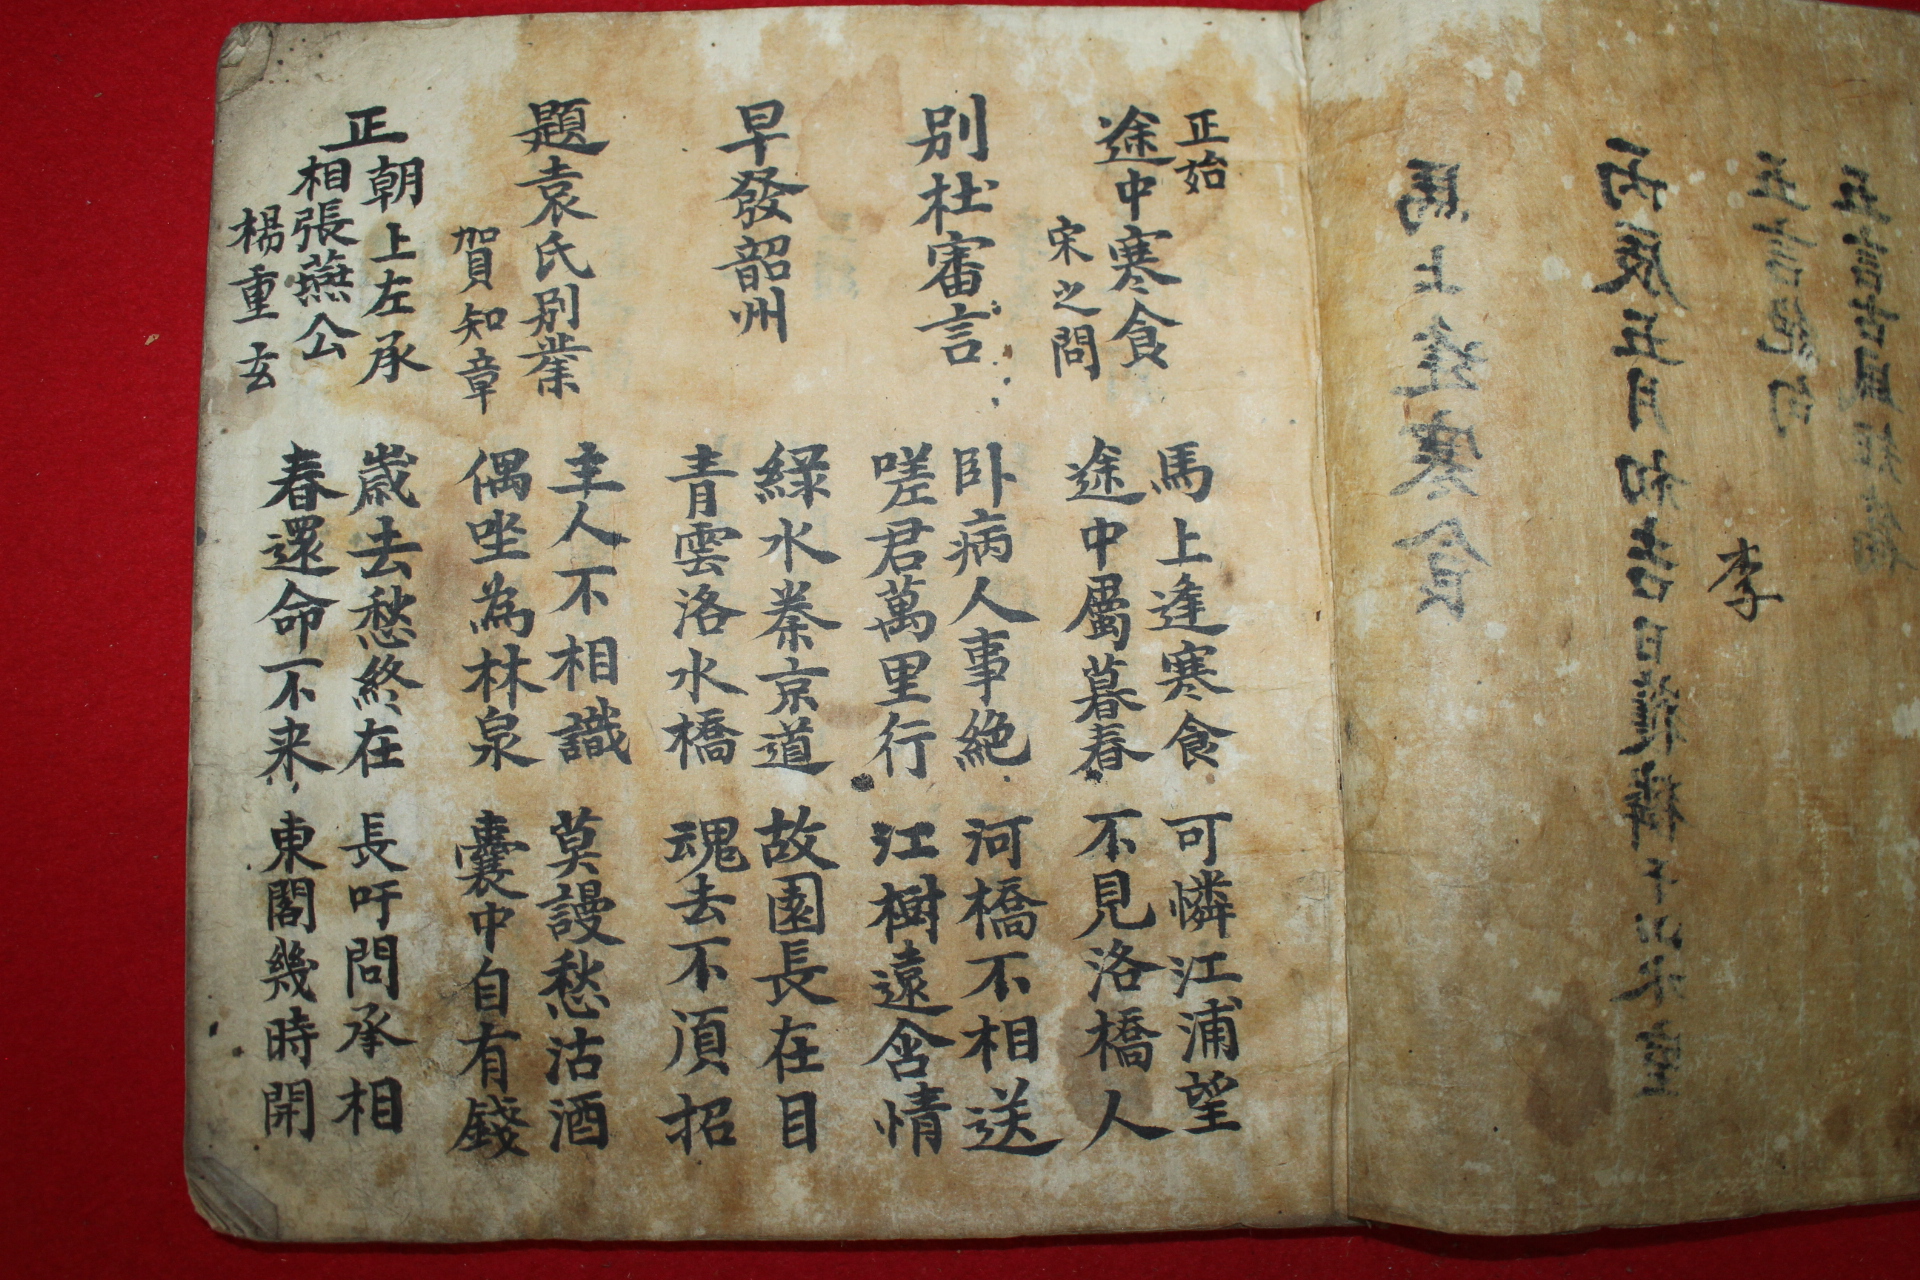 五言古風短篇
五言絶句
李
丙辰五月初吉日
馬上逢寒食
正始
途中寒食
宋之問
馬上逢寒食 可憐江浦望
途中屬暮春 不見洛橋人
別杜審言
卧病人事絶 河橋不相送
嗟君萬里行 江樹遠含情
早發韶州
緑水秦京道 故園長在目
青雲洛水橋 魂去不湏招
題袁氏別業
賀知章
主人不相識 莫謾愁沽酒
偶坐為林泉 囊中自有錢
正朝上左承
相張燕公
楊重玄
歲去愁終在 長吁問承相
春還命不来 東閣幾時開